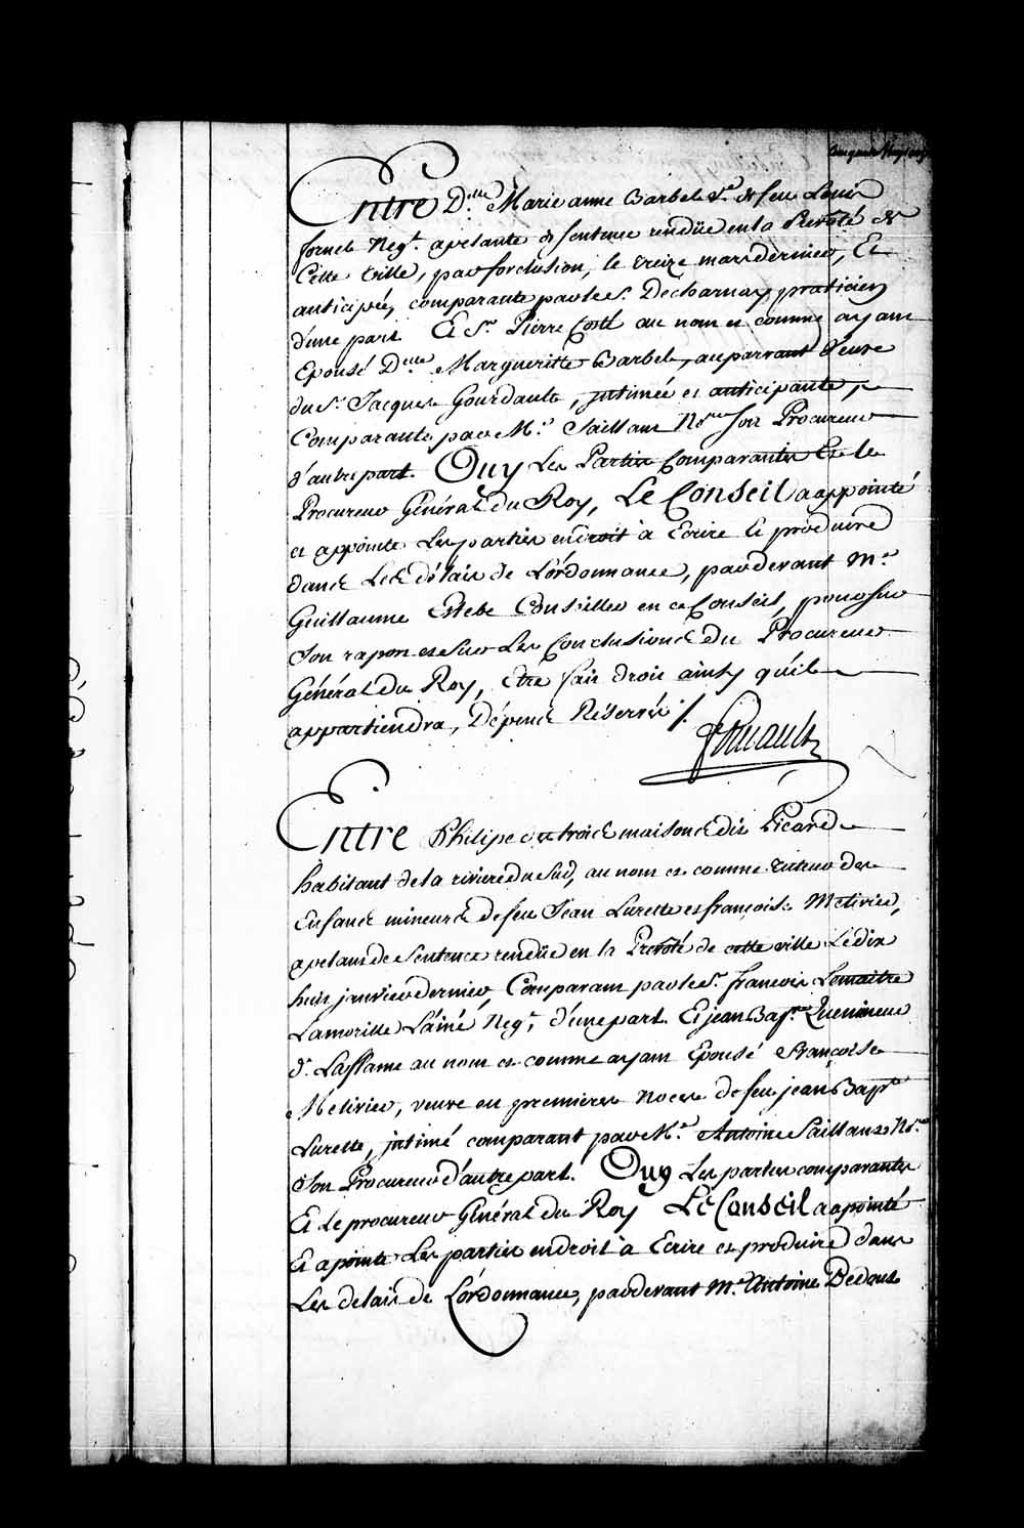 Entre D.lle Marie anne Barbel v.e de feu Louis
fornel Neg.t apelante de sentence rendüe en la Prevoté de
Cette ville, par forclusion, le treize mars dernier, Et
anticipée, comparante par le s.r Decharnay praticien
d'une part. Et S.r Pierre Costé au nom et comme ayant
Epousé D.elle Margueritte Barbel, auparvant Veuve
du s.r Jacques Gourdault, jntimée et anticipante,
Comparante par M.e Saillant N.re son Procureur
d'autre part. Ouy Les Parties Comparantes Et le
Procureur Général du Roy, Le Conseil a appointé
et appointe Les parties en droit à Ecrire et produire
dans Les délais de L'ordonnance, pardevant M.e
Guillaume Estebe Conseiller en ce Conseil, pour sur
Son raport et sur Les Conclusions du Procureur
Général du Roy, Etre fait droit ainsy qu'il
appartiendra, Dépens Réservés /.
Foucault
Entre Philipe destroies maisons dit Picard
habitant de la riviere du Sud, au nom et comme tuteur des
Enfans mineurs de feu Jean Lurette et françoise Metivier,
apelant de Sentence rendüe en la Prevoté de cette ville Le dix
huit janvier dernier, Comparant par le s.r francois Lemaitre
Lamorille L'ainé Neg.t, d'une part. Et jean Bap.te
d.t Laflame au nom et comme ayant Epousé françoise
Metivier, veuve en premieres noces de feu jean Bap.te
Lurette, jntimé comparant par M.e Antoine Saillant N.re
Son Procureur d'autre part. Ouy Les parties comparantes
Et Le procureur Général du Roy Le Conseil a apointé
Et apointe Les parties en droit à Ecrire et produire dans
Les delais de L'ordonnance, pardevant M.e Antoine